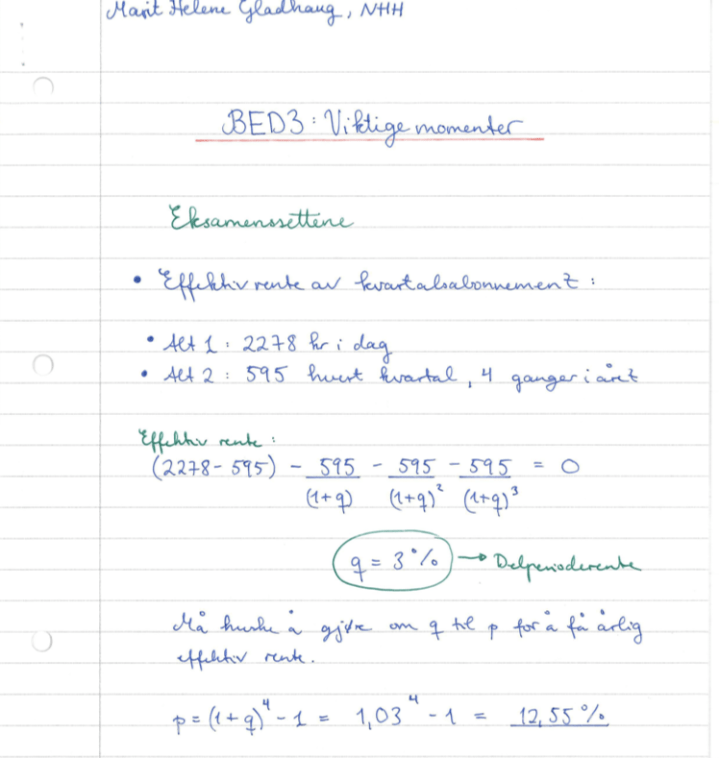 Marit Helene Gladhaug, NHH
BED3: Viktige momenter
Eksamenssettene
• Effektiv rente av kvartalsabonnement:
• Alt 1: 2278 kr i dag
• Alt 2: 595 hvert kvartal, 4 ganger i året
Effektiv rente:
(2278-595) - 595/(1+q) - 595/(1+q)² - 595/(1+q)³ = 0
q = 3% → Delperioderente
Må huske å gjøre om q til p for å få årlig
effektiv rente.
p = (1+q)⁴ - 1 = 1,03⁴ - 1 = 12,55%